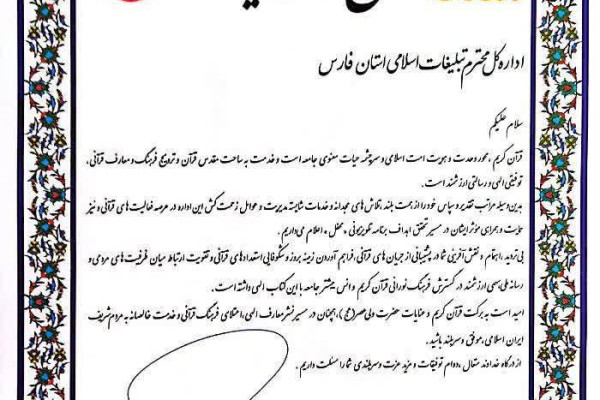 اداره کل محترم تبلیغات اسلامی استان فارس
سلام علیکم
قرآن کریم، محور وحدت و هویت امت اسلامی و سرچشمه حیات معنوی جامعه است و خدمت به ساحت مقدس قرآن و ترویج فرهنگ و معارف قرآنی،
توفیقی الهی و رسالتی ارزشمند است.
بدین وسیله مراتب تقدیر و سپاس خود را از همت بلند، تلاش های مجدانه و خدمات شایسته مدیریت و عوامل زحمت کش این اداره در عرصه فعالیت های قرآنی و نیز
حمایت و همراهی مؤثر ایشان در مسیر تحقق اهداف برنامه تلویزیونی «محفل» اعلام می داریم.
بی تردید، اهتمام و نقش آفرینی شما در پشتیبانی از جریان های قرآنی، فراهم آوردن زمینه بروز و شکوفایی استعدادهای قرآنی و تقویت ارتباط میان ظرفیت های مردمی و
رسانه ملی، سهمی ارزشمند در گسترش فرهنگ نورانی قرآن کریم و انس بیشتر جامعه با این کتاب الهی داشته است.
امید است به برکت قرآن کریم و عنایات حضرت ولی عصر (عج)، همچنان در مسیر نشر معارف الهی، اعتلای فرهنگ قرآنی و خدمت خالصانه به مردم شریف
ایران اسلامی، موفق و سربلند باشید.
از درگاه خداوند متعال، دوام توفیقات و مزید عزت و سربلندی شما را مسئلت داریم.